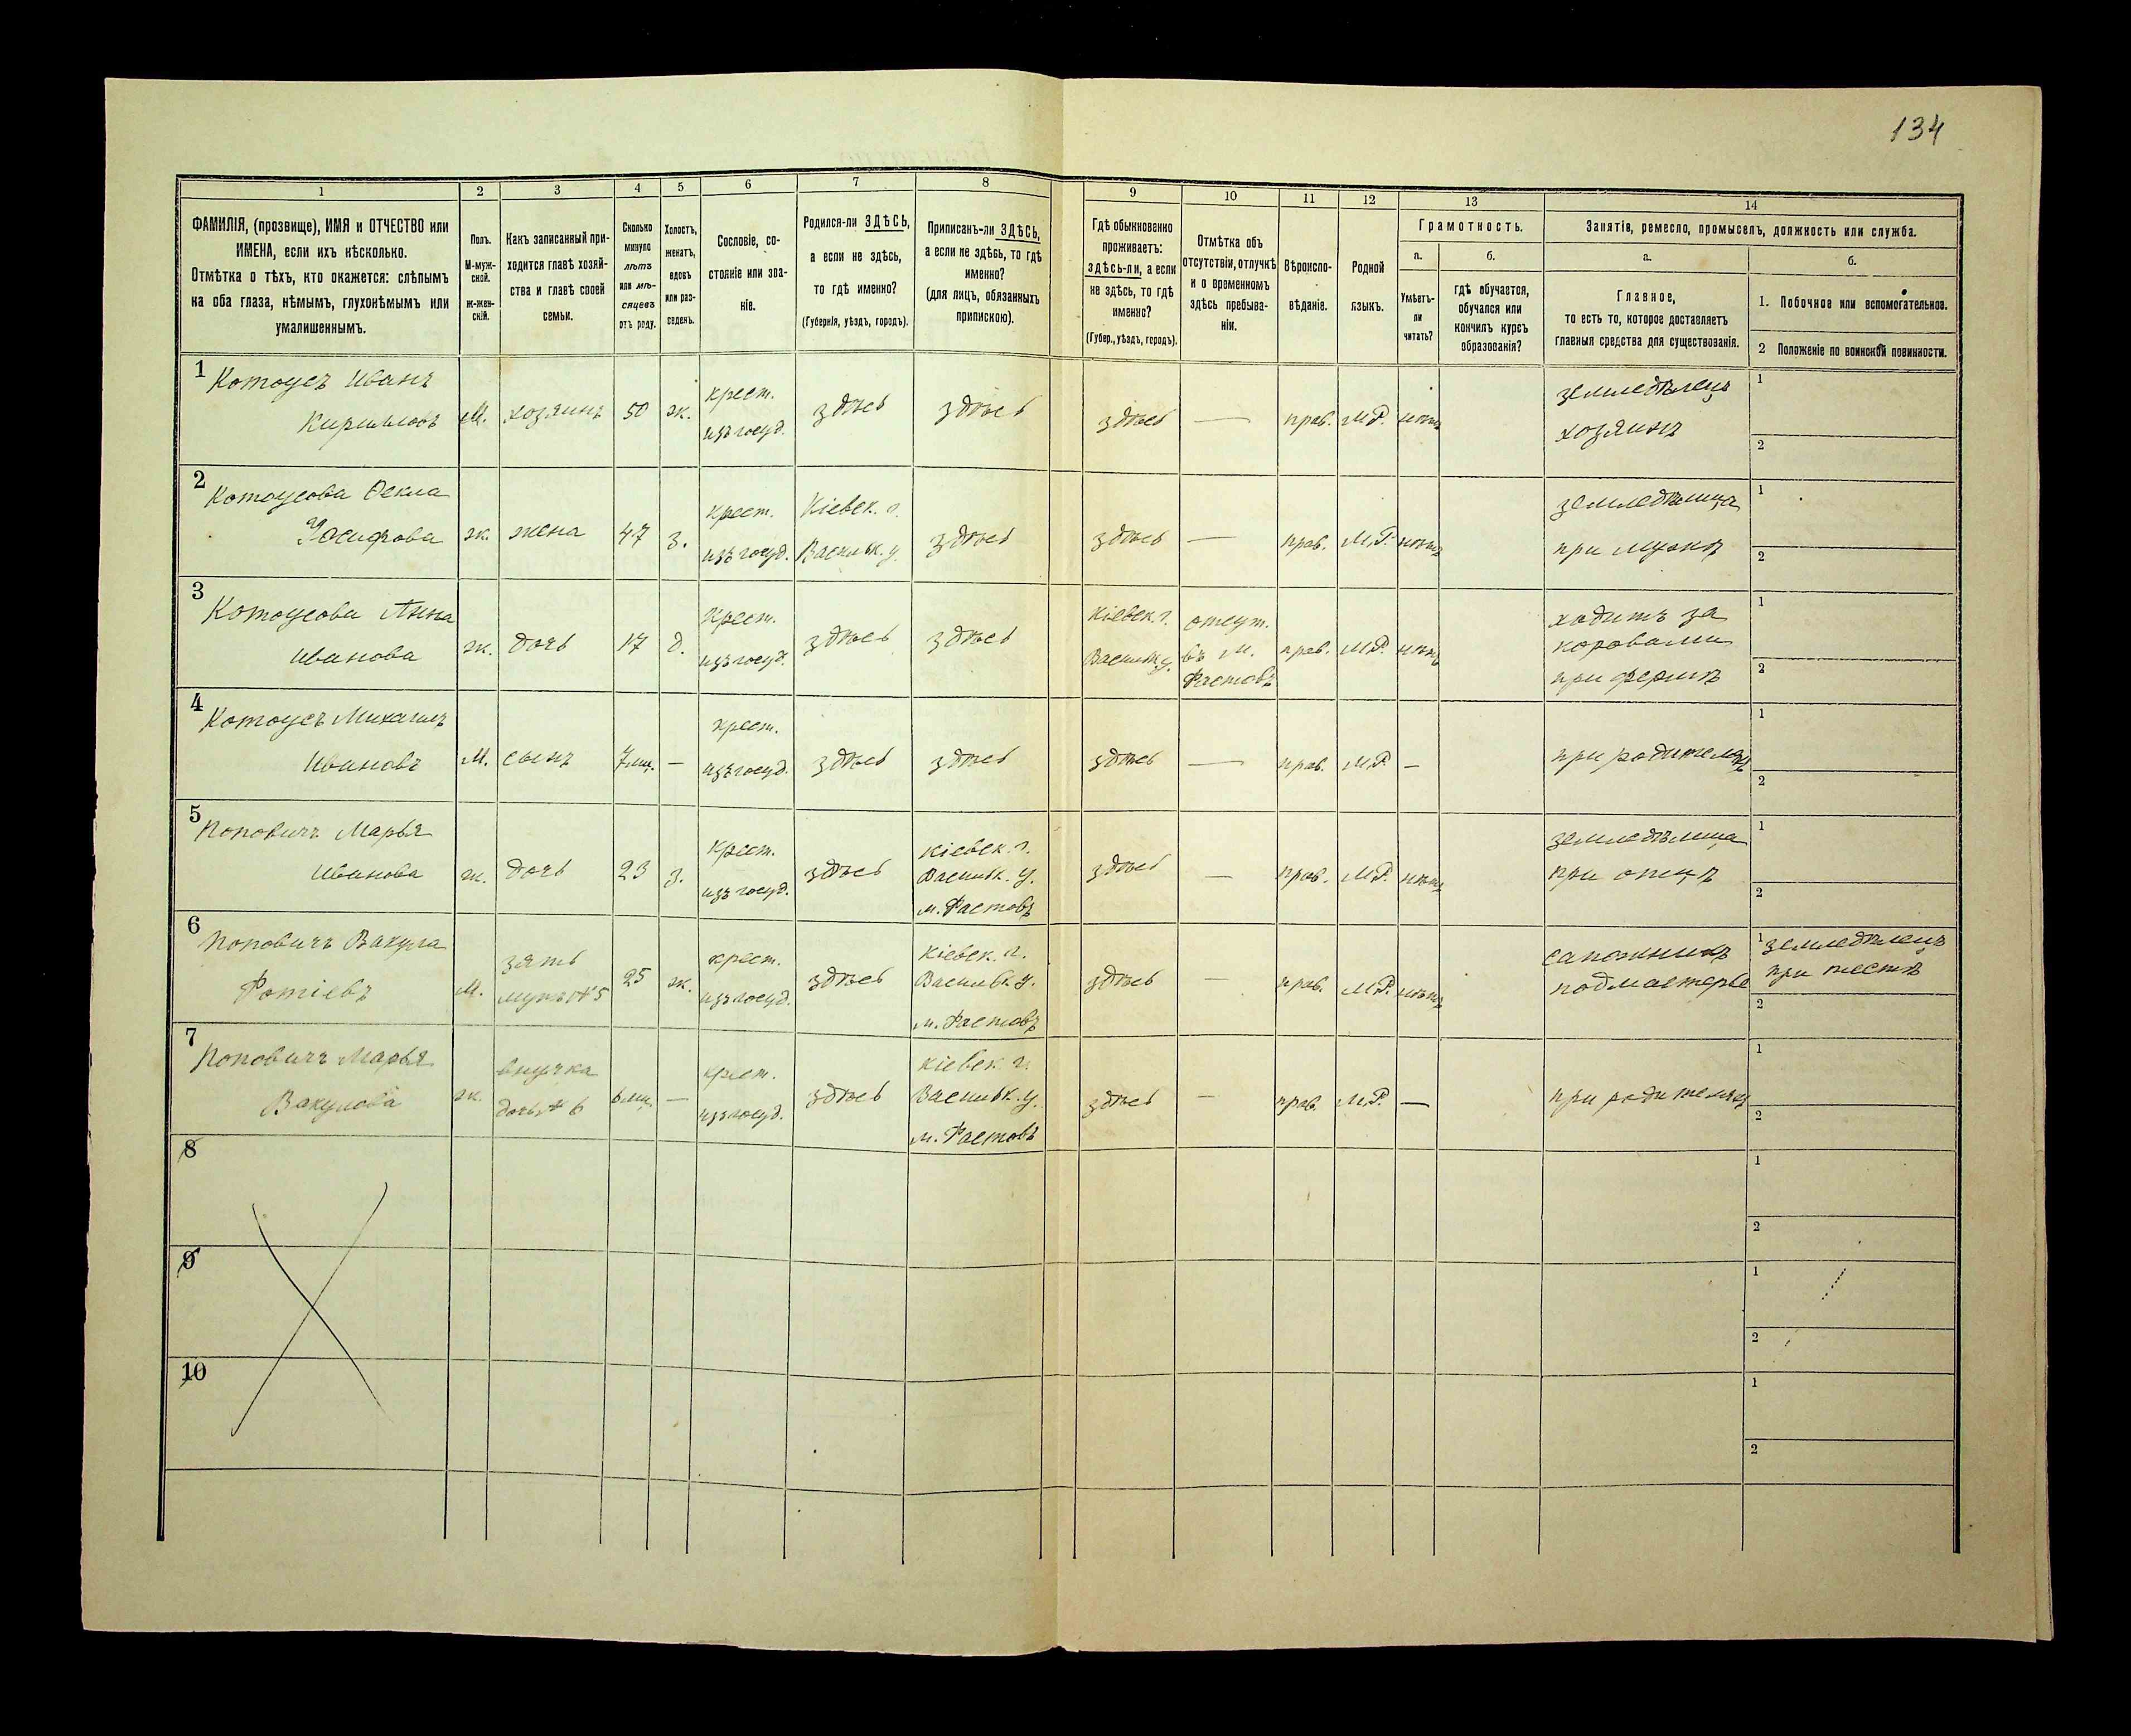 134
1 2 3 4 5 6 7 8 9 10 11 12 13 14
ФАМИЛІЯ, (прозвище), ИМЯ и ОТЧЕСТВО или
ИМЕНА, если ихъ нѣсколько.
Отмѣтка о тѣхъ, кто окажется: слѣпымъ
на оба глаза, нѣмымъ, глухонѣмымъ или
умалишеннымъ.
Полъ.
М-муж-
ской.
ж-жен-
скій.
Какъ записанный при-
ходится главѣ хозяй-
ства и главѣ своей
семьи.
Сколько
минуло
лѣтъ
или мѣ-
сяцевъ
отъ роду.
Холостъ,
женатъ,
вдовъ
или раз-
веденъ.
Сословіе, со-
стояніе или зва-
ніе.
Родился-ли ЗДѢСЬ,
а если не здѣсь,
то гдѣ именно?
(Губернія, уѣздъ, городъ).
Приписанъ-ли ЗДѢСЬ,
а если не здѣсь, то гдѣ
именно?
(для лицъ, обязанныхъ
припискою).
Гдѣ обыкновенно
проживаетъ:
здѣсь-ли, а если
не здѣсь, то гдѣ
именно?
(Губер., уѣздъ, городъ).
Отмѣтка объ
отсутствіи, отлучкѣ
и о временномъ
здѣсь пребыва-
ніи.
Вѣроиспо-
вѣданіе.
Родной
языкъ.
Грамотность.
а.
Умѣетъ-
ли
читать?
б.
гдѣ обучается,
обучался или
кончилъ курсъ
образованія?
Занятія, ремесло, промыселъ, должность или служба.
а.
Главное,
то есть то, которое доставляетъ
главныя средства для существованія.
б.
1. Побочное или вспомогательное.
2 Положеніе по воинской повинности.
1 Котоусъ Иванъ
Кириловъ М. хозяинъ 50 ж. крест.
изъ госуд. здѣсь здѣсь здѣсь — прав. М.Р. нѣтъ земледѣлецъ
хозяинъ 1
2
2 Котоусова Ѳекла
Іосифова ж. жена 47 з. крест.
изъ госуд. Кіевск. г.
Васильк. у. здѣсь здѣсь — прав. М.Р. нѣтъ земледѣлица
при мужѣ 1
2
3 Котоусова Анна
Иванова ж. дочь 17 д. крест.
изъ госуд. здѣсь здѣсь Кіевск. г.
Васильк. у. отсут.
въ м.
Фастовъ прав. М.Р. нѣтъ ходитъ за
коровами
при фермѣ 1
2
4 Котоусъ Михаилъ
Ивановъ М. сынъ 7 мц. — крест.
изъ госуд. здѣсь здѣсь здѣсь — прав. М.Р. — при родителяхъ 1
2
5 Поповичъ Марья
Иванова ж. дочь 23 з. крест.
изъ госуд. здѣсь Кіевск. г.
Васильк. у.
м. Фастовъ здѣсь — прав. М.Р. нѣтъ земледѣлица
при отцѣ 1
2
6 Поповичъ Вакула
Фотіевъ М. зять
мужъ №5 25 ж. крест.
изъ госуд. здѣсь Кіевск. г.
Васильк. у.
м. Фастовъ здѣсь — прав. М.Р. нѣтъ сапожникъ
подмастерье 1 земледѣлецъ
при тестѣ
2
7 Поповичъ Марья
Вакулова ж. внучка
дочь № 6 6 мц. — крест.
изъ госуд. здѣсь Кіевск. г.
Васильк. у.
м. Фастовъ здѣсь — прав. М.Р. — при родителяхъ 1
2
8 1
2
9 1
2
10 1
2